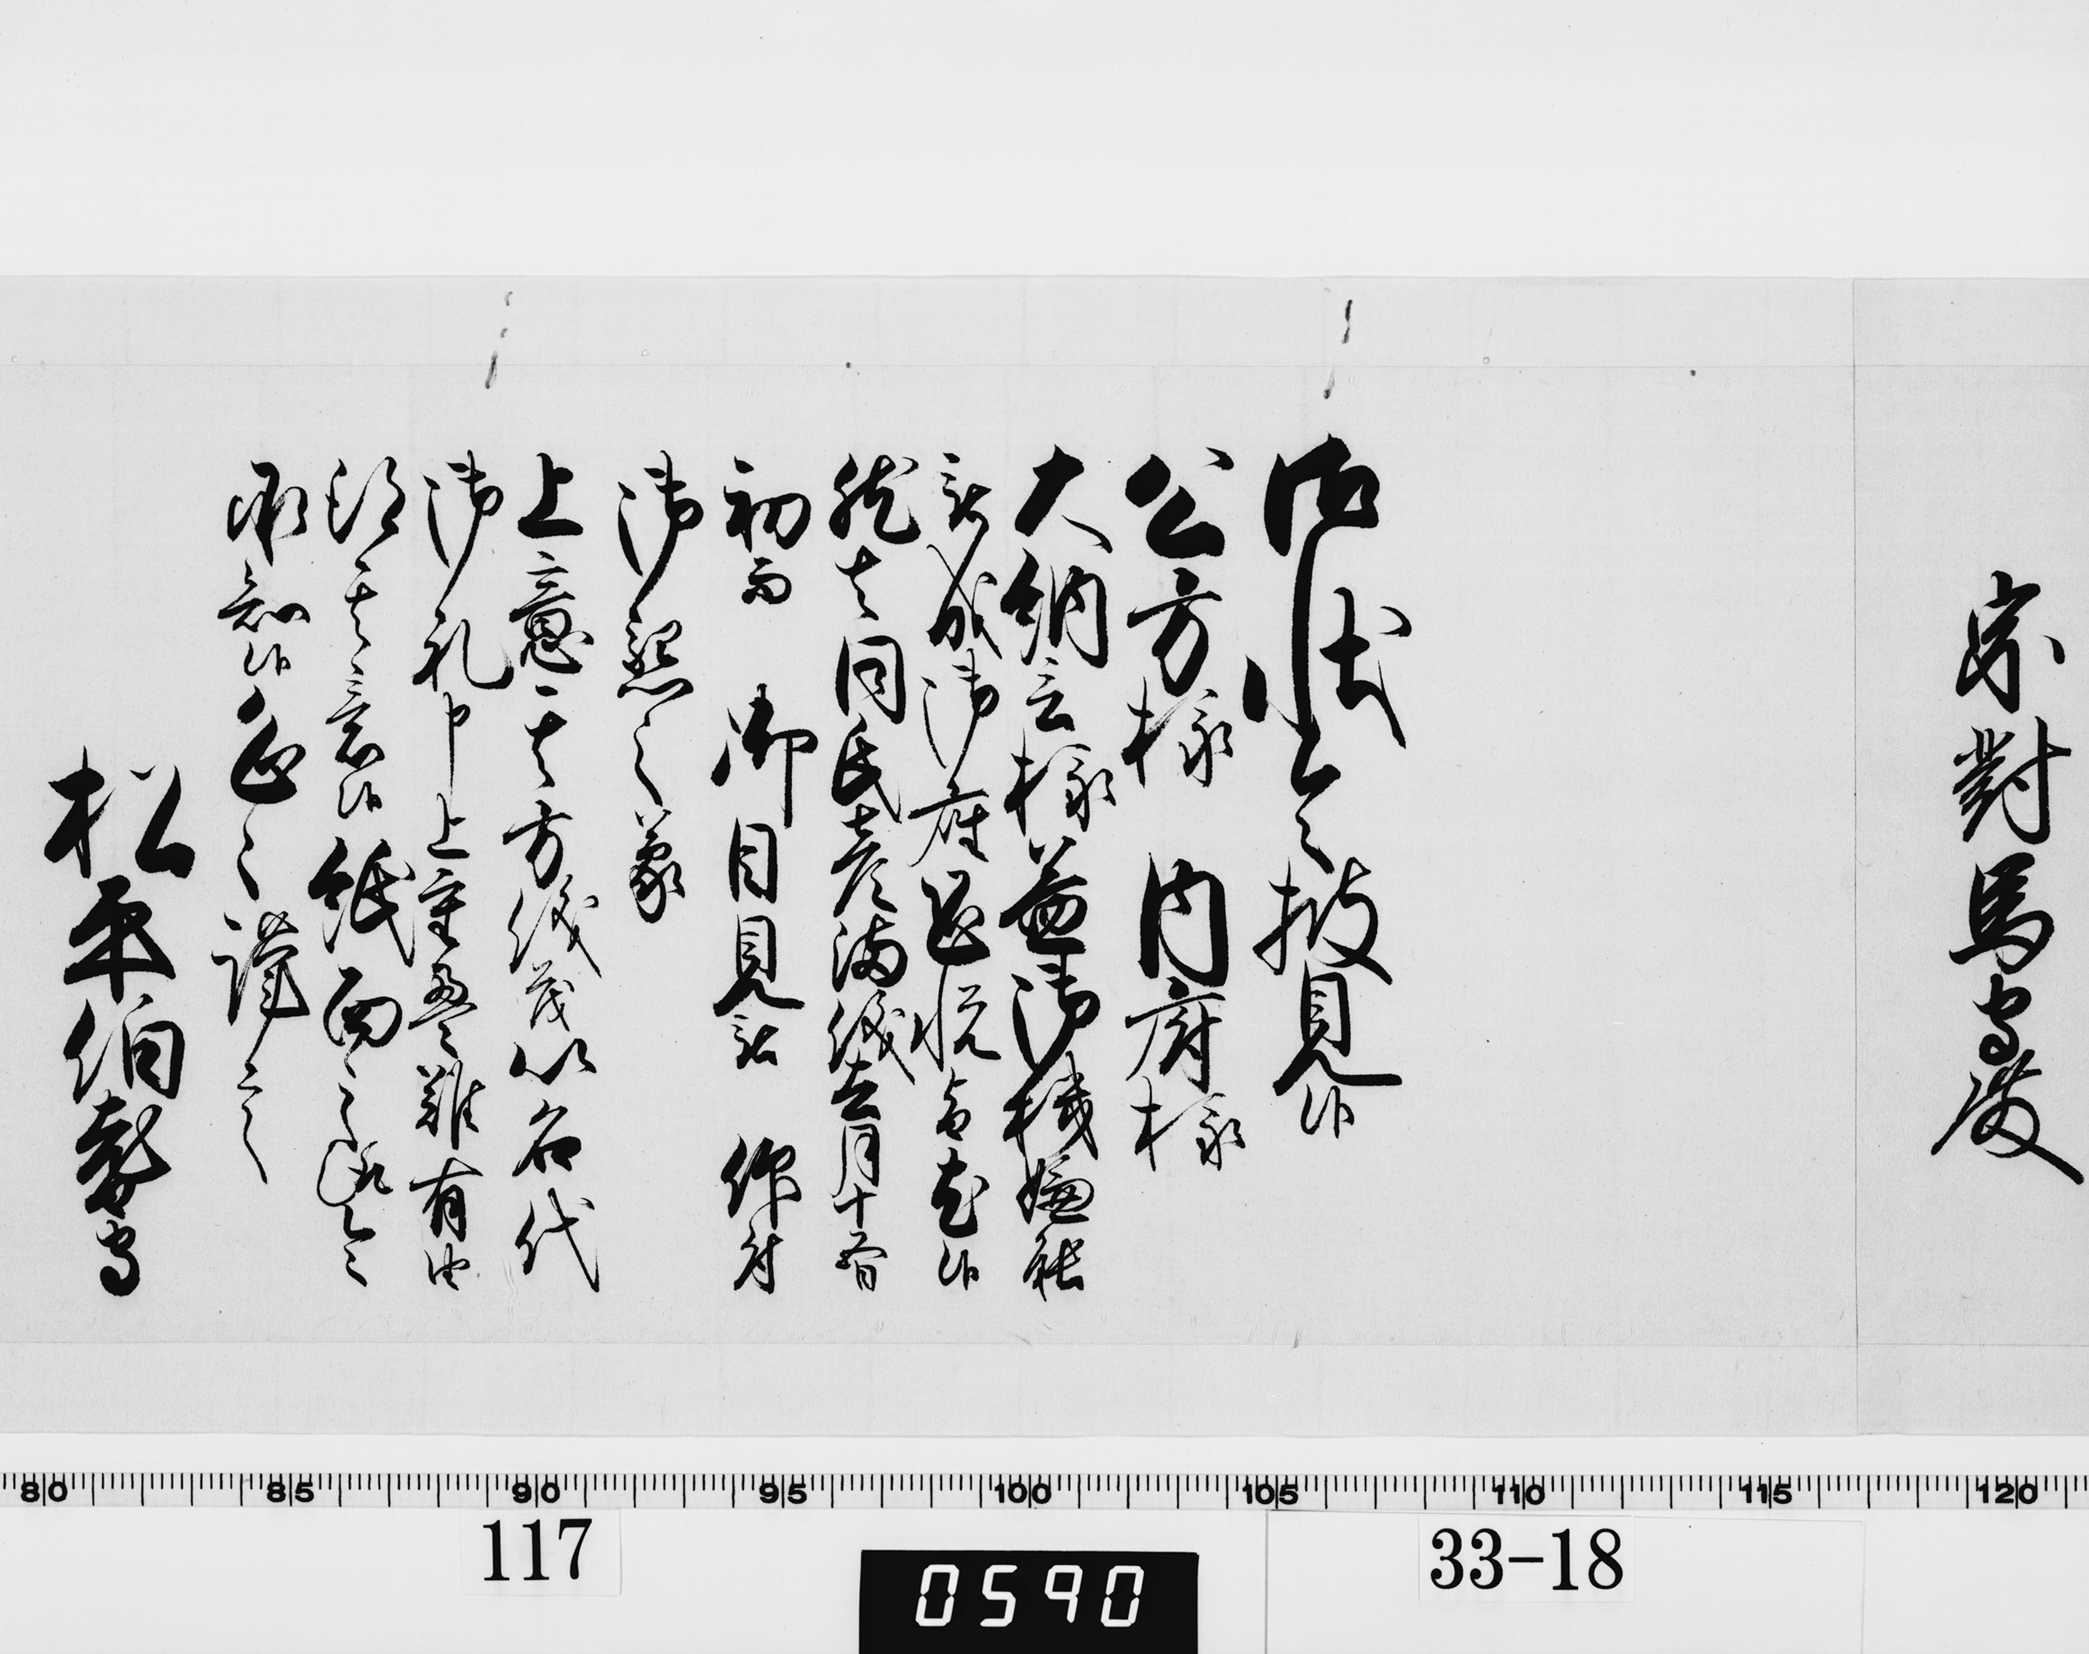 宗對馬守殿
御状令披見候
公方様　内府様
大納言様益御機嫌能
被成御座恐悦旨尤候
然者同氏彦満儀去月十五日
初而　御目見被　仰付
御懇之蒙
上意其方儀茂以名代
御礼申上重畳難有由
得其意候紙面之趣令
承知候恐々謹言
松平伯耆守
80 85 90 95 100 105 110 115 120
117
0590
33-18